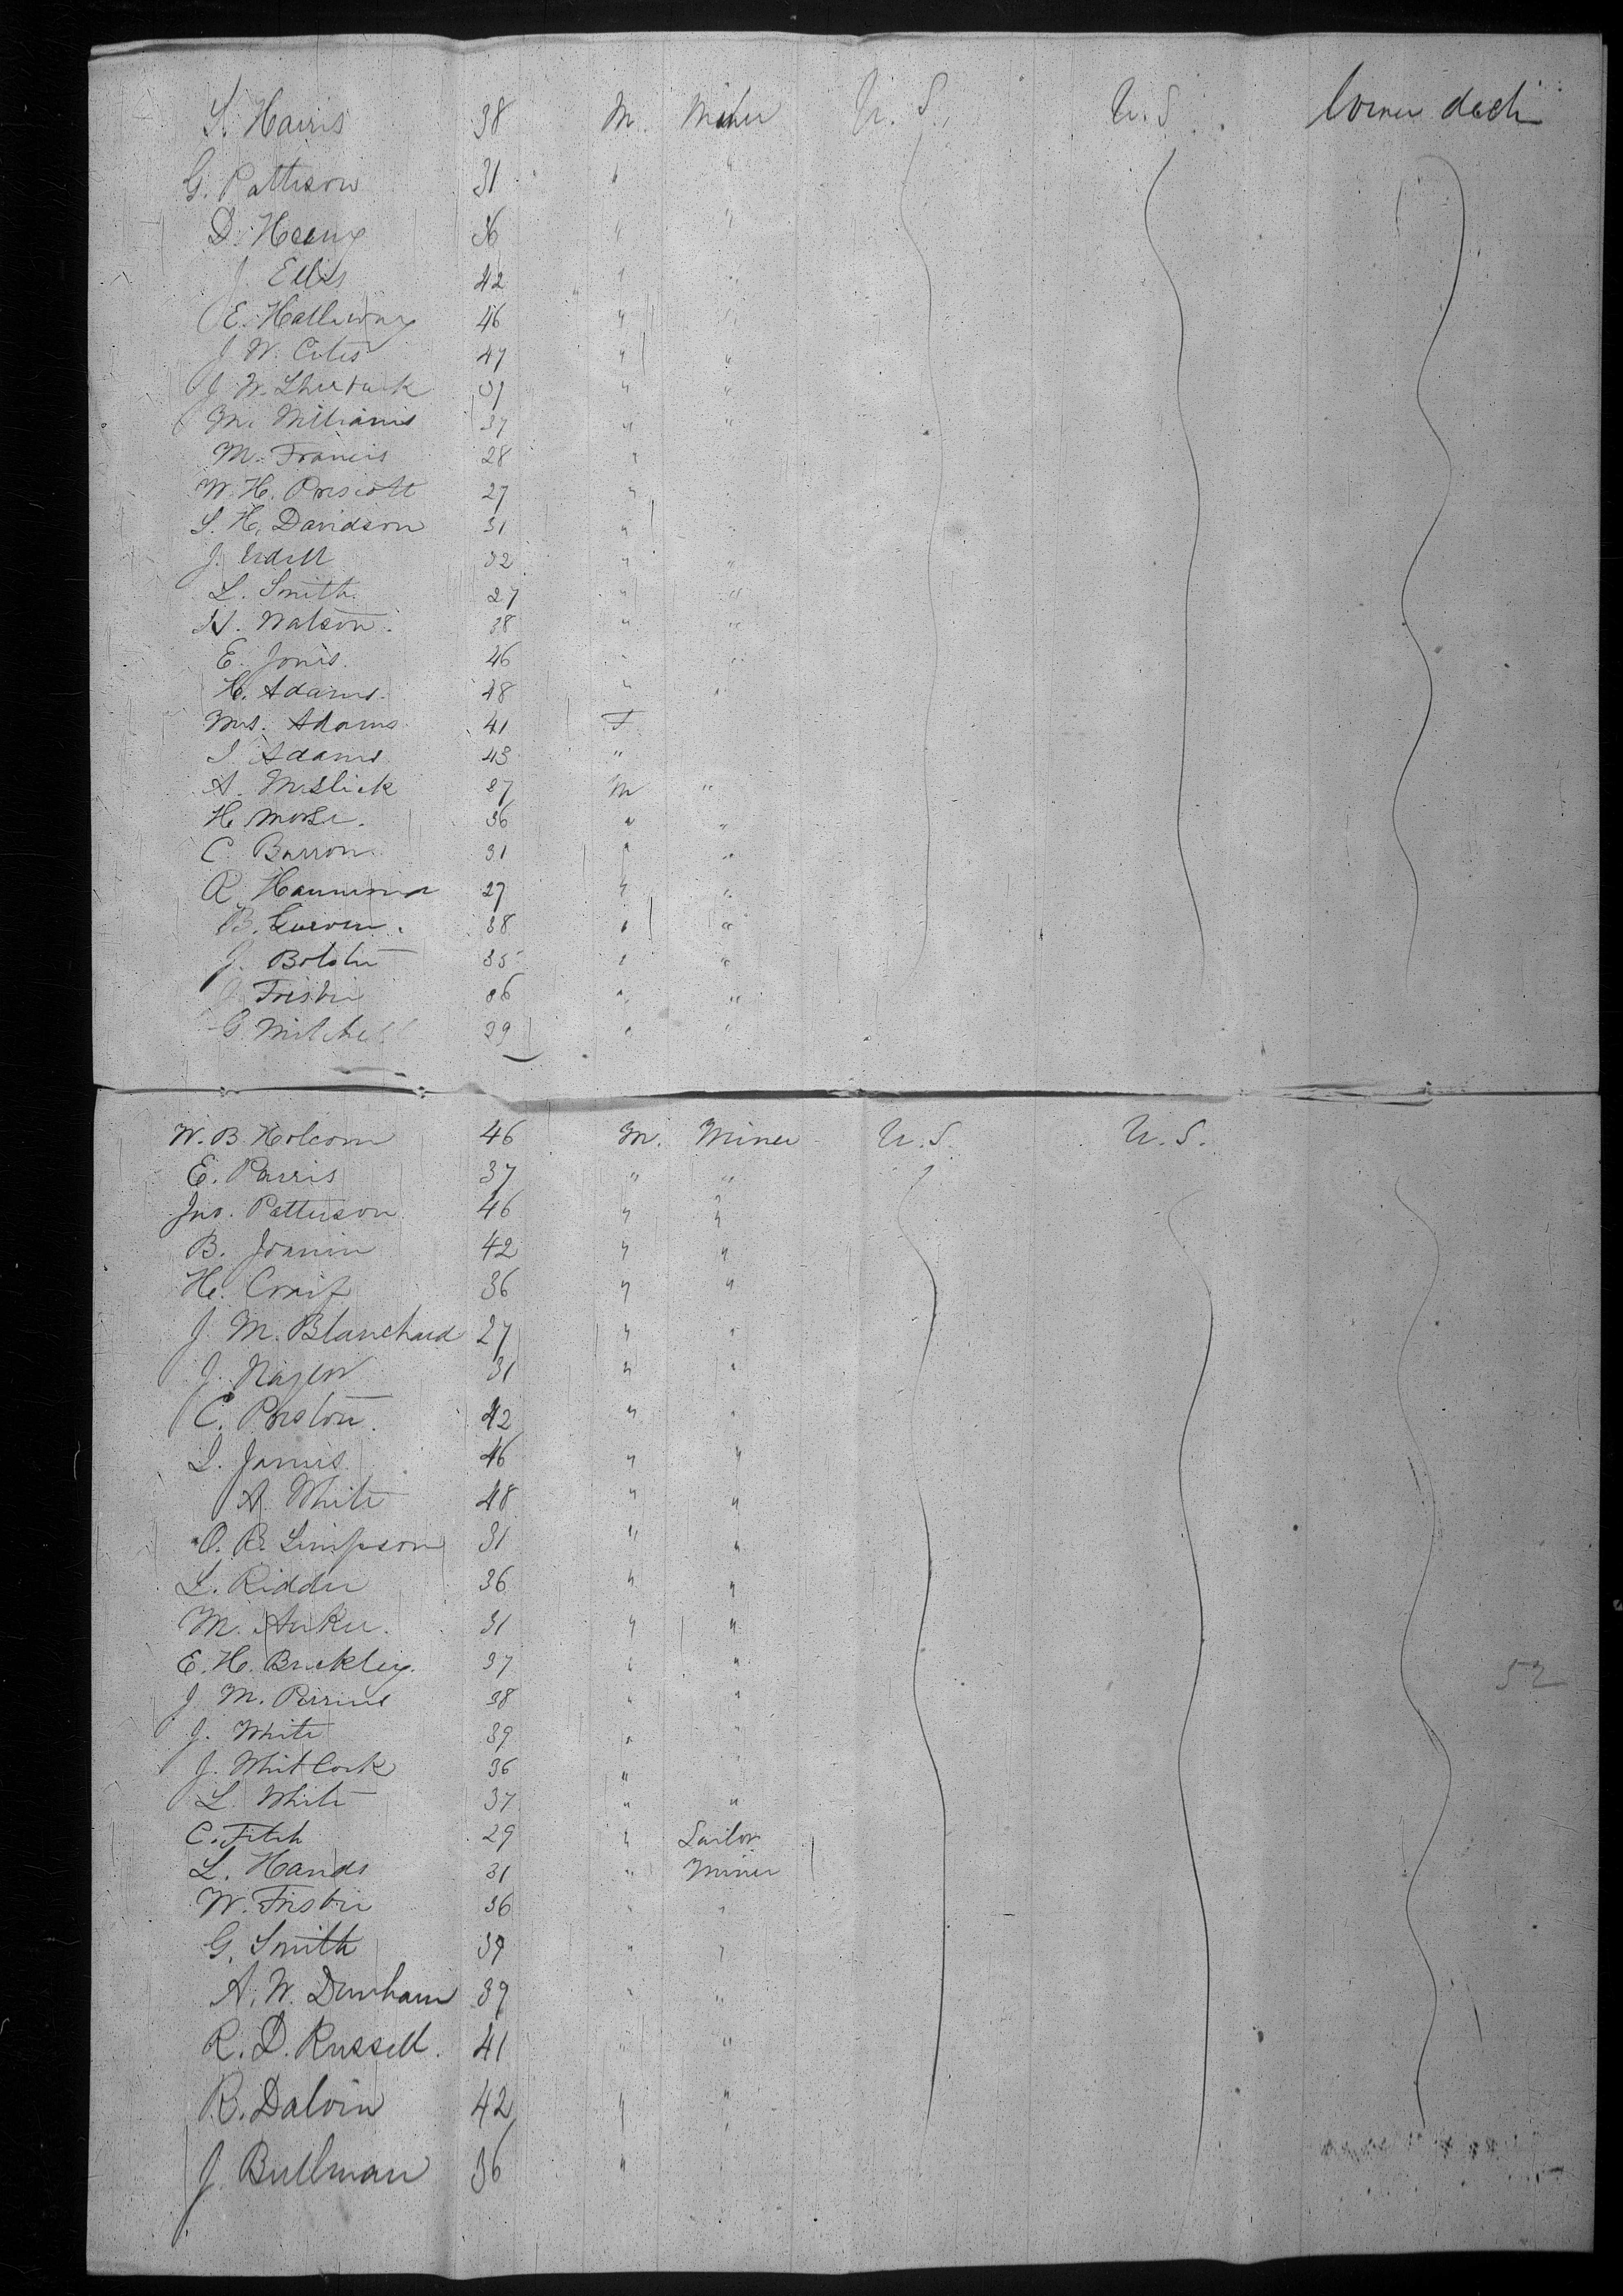 S. Harris 38 M. Miner U. S. U. S. lower deck
G. Pattison 31 " "
D. Heeny 36 " "
J. Ellis 42 " "
E. Hallway 46 " "
J. W. Cites 47 " "
J. W. 39 " "
M. Williams 37 " "
M. Francis 28 "
W. H. Prescott 27 "
S. H. Davidson 31 " "
J. 32 " "
L. Smith 27 " "
H. Watson. 38 " "
E. Jones. 46 " "
H. Adams. 48 " "
Mrs. Adams 41 F
J. Adams 43 "
A. Meslick 37 M "
H. Morse. 36 " "
C. Barron 31 " "
R. Hammond 27 " "
B. 38 " "
J. Bolster 35 " "
Frisbie 36 " "
G. Mitchell 39 " "
W. B. Holcom 46 M. Miner U. S. U. S.
E. Parris 37 " "
Jno. Patterson 46 " "
B. 42 " "
H. Craig 36 " "
J. M. Blanchard 27 " "
J. 31 " "
C. Preston. 42 " "
L. James 46 " "
A. White 48 " "
O. R. Simpson 31 " "
L. Ridder 36 " "
M. 31 " "
E. H. Buckley. 37 " "
J. M. Perrine 38 " "
J. White 39 " "
J. Whitlock 36 " "
L. White 37 " "
C. Fitch 29 " Sailor
L. Hands 31 " Miner
W. Frisbie 36 " "
G. Smith 39 " "
A. W. Dunham 39 " "
R. D. Russell. 41 " "
R. Dalvin 42 " "
J. Bullman 36 " "
52